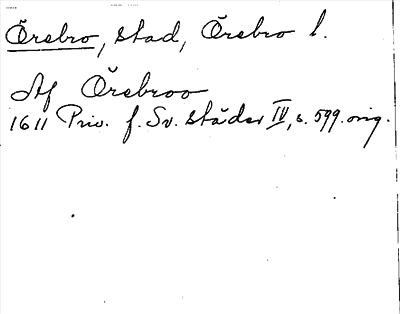 Örebro, stad, Örebro l.
Af Örebroo
1611 Priv. f. Sv. städer IV, s. 599. orig.